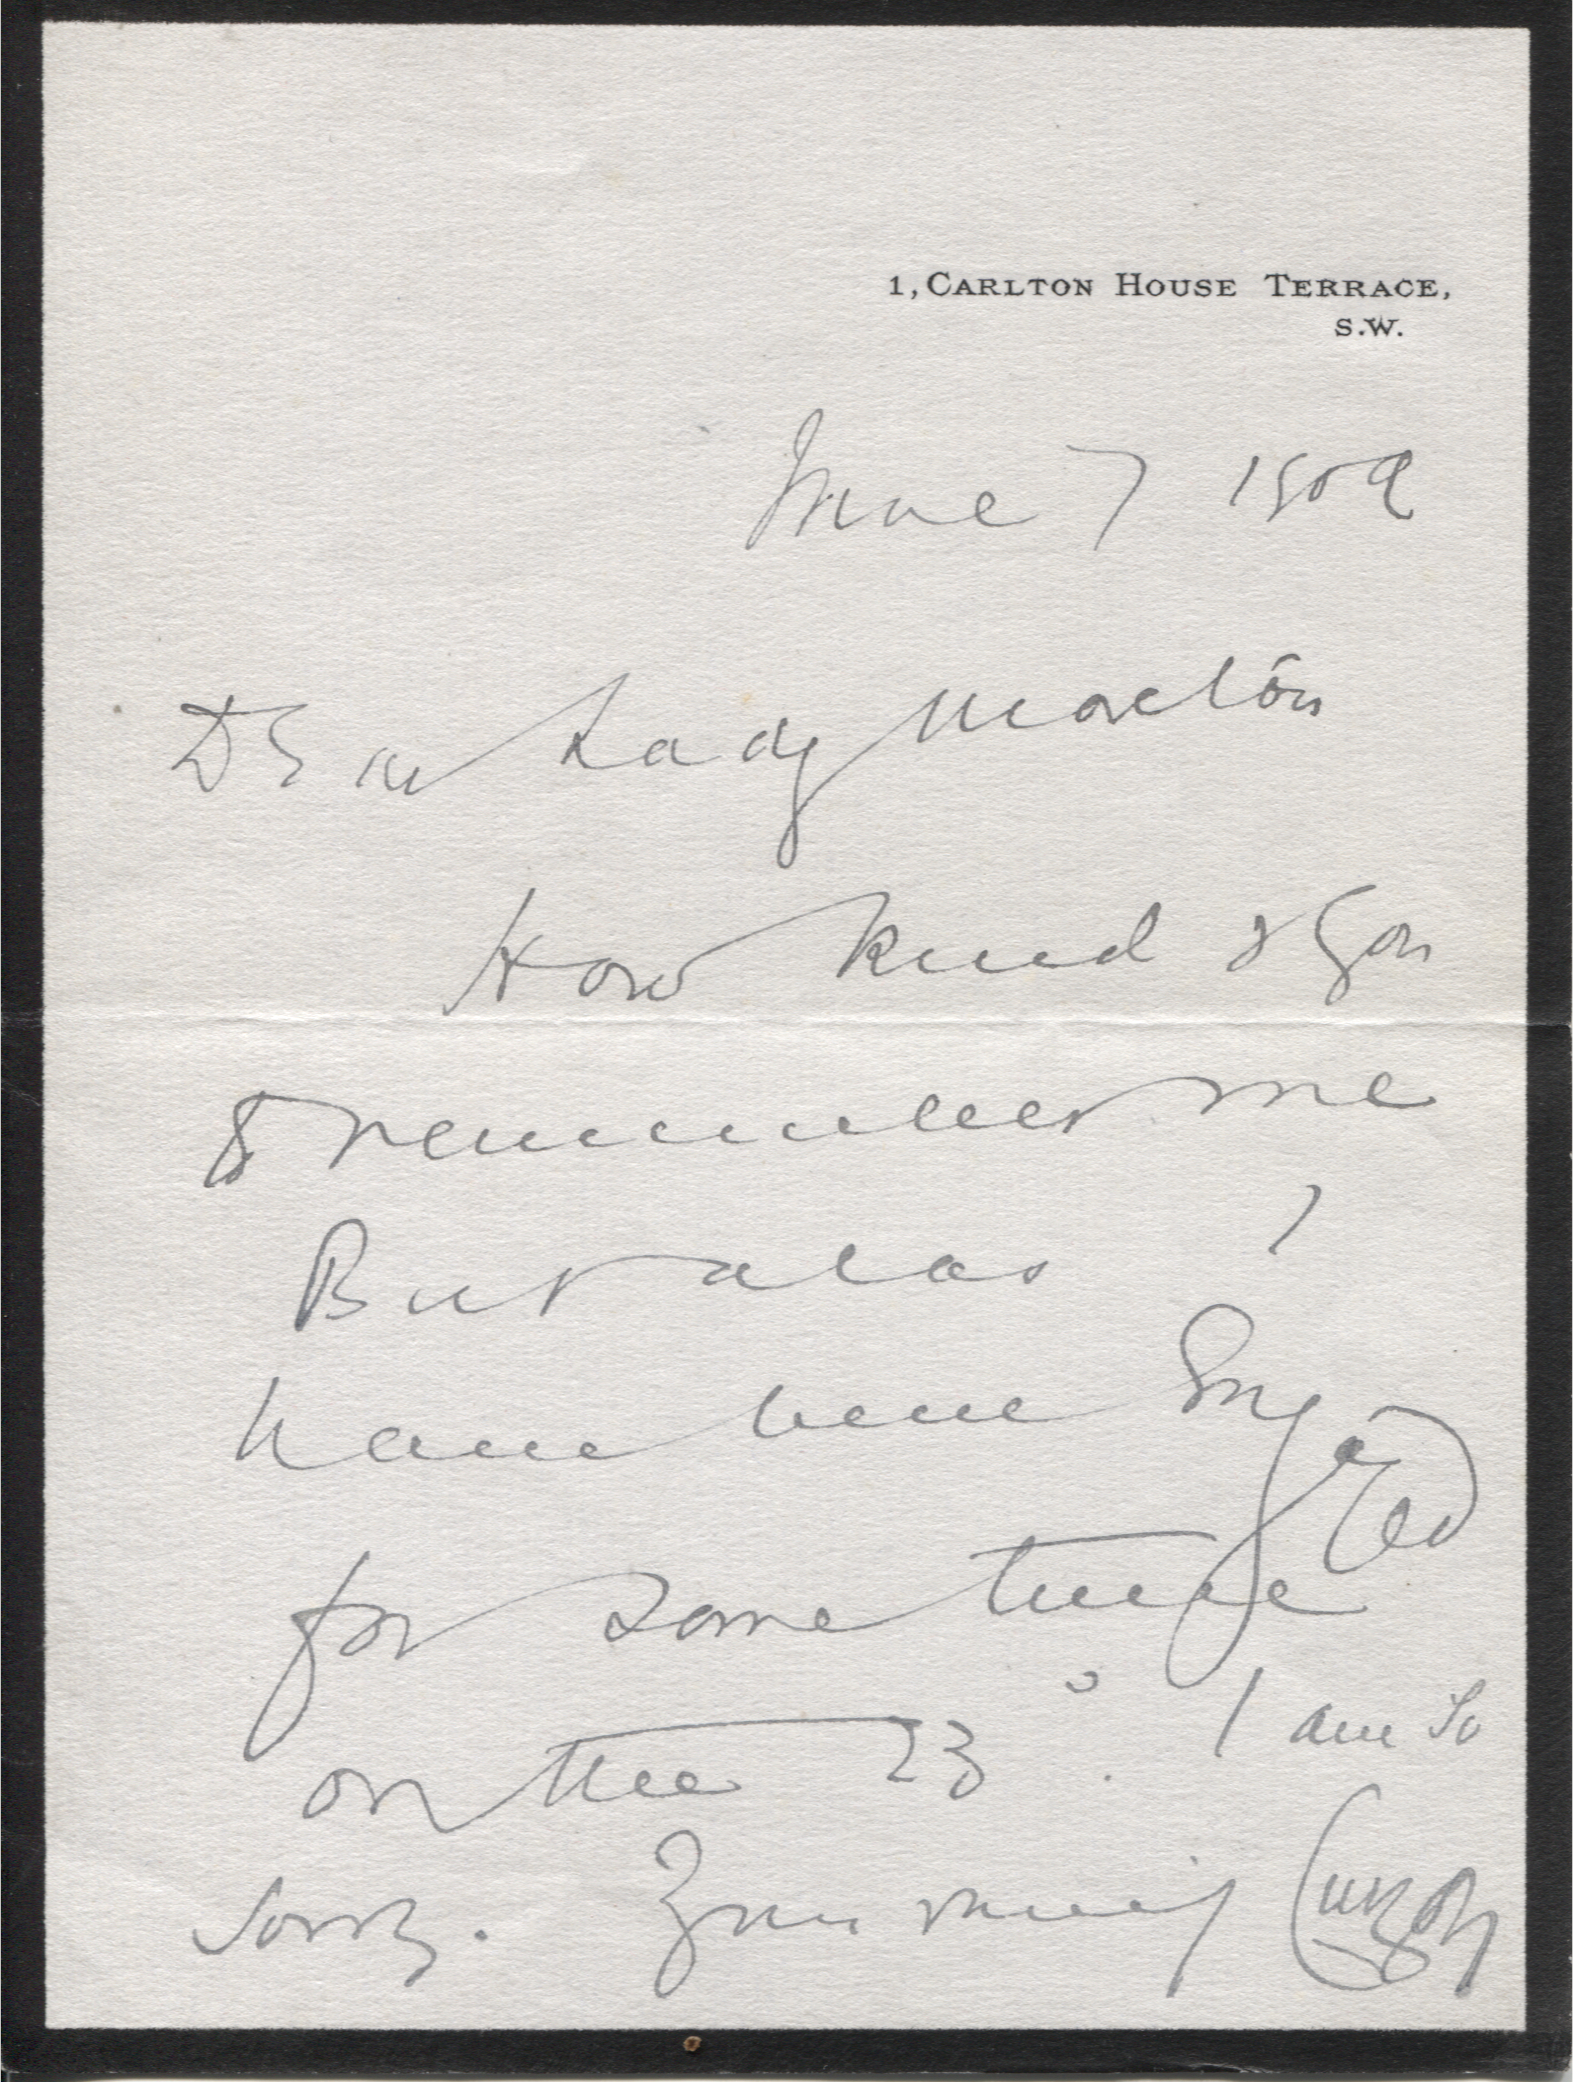 1, CARLTON HOUSE TERRACE,
S.W.
June 7 1909
Dear Lady
How kind of you
to remember me
But alas I
have been engaged
for some time
on the 23rd. I am so
sorry. Yours sincerely Curzon